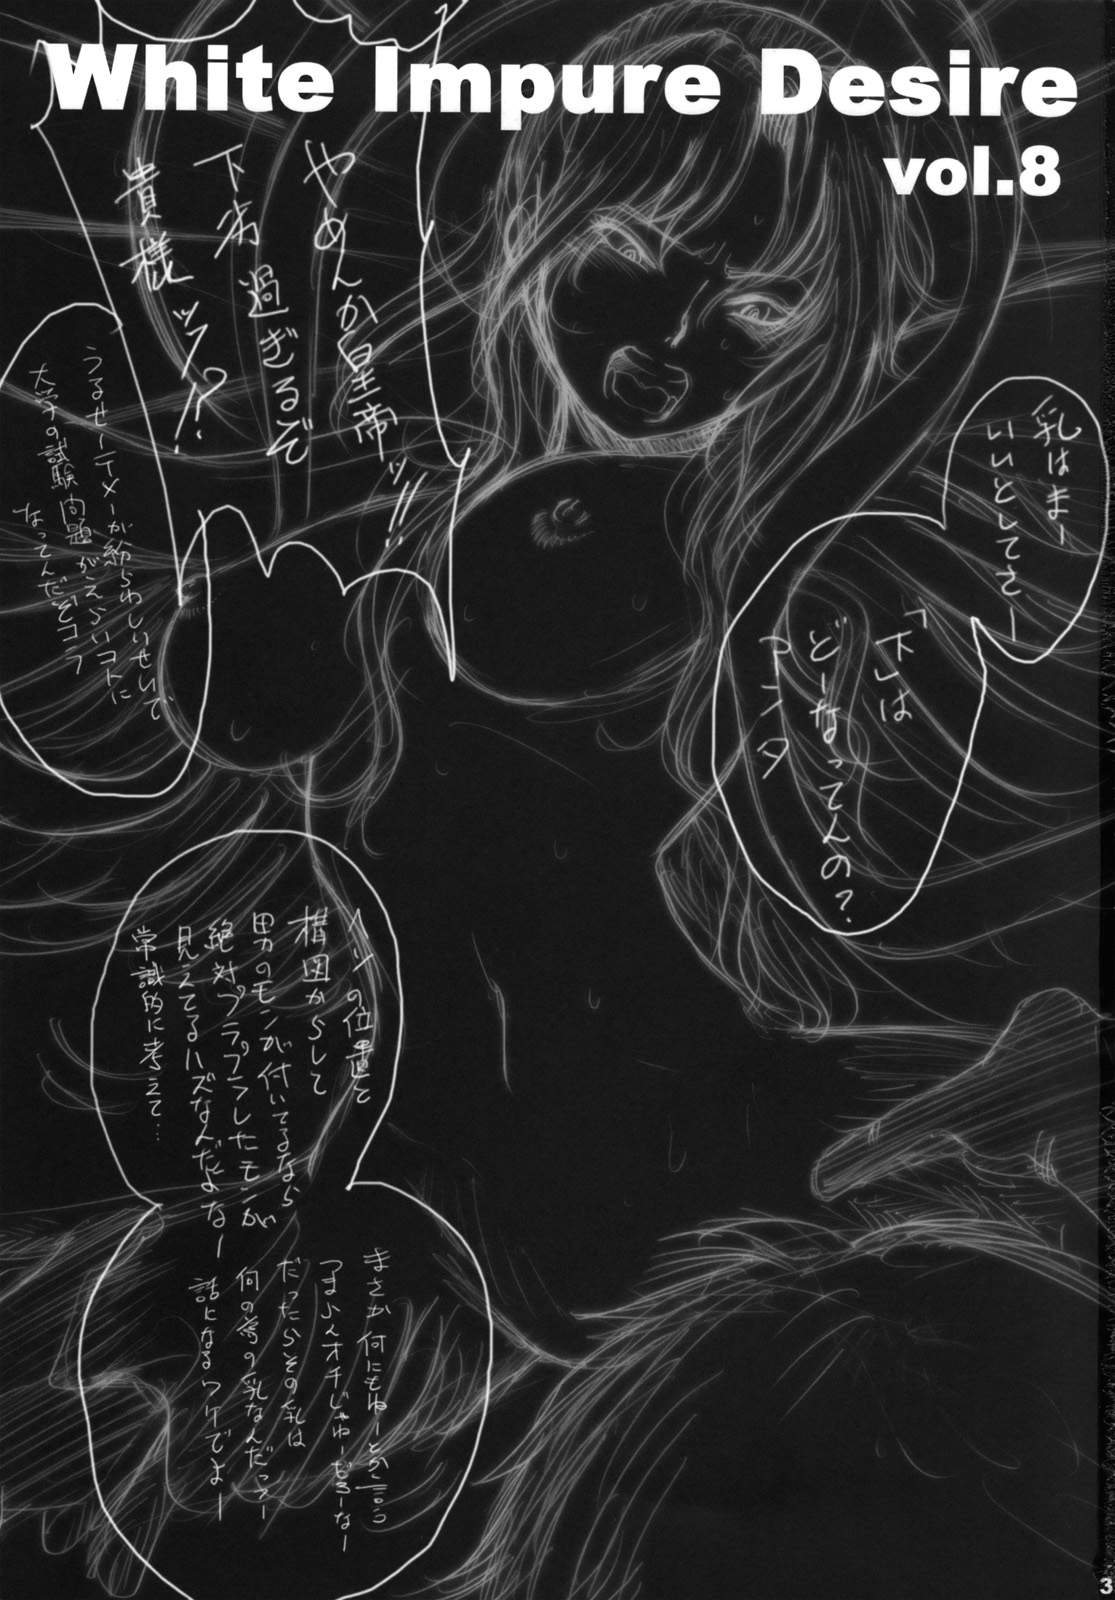 White Impure Desire
vol.8
乳はまー
いいとしてさー
「下」は
どーなってんの?
アンタ
やめんか皇帝ッ!!
下衆過ぎるぞ
貴様ッ!?
うるせーテメーが紛らわしいせいで
大学の試験問題がえらいコトに
なってんだぞコラ
ヘソの位置と
構図からして
男のモンが付いてるなら
絶対プラプラしたモンが
見えてるハズなんだよなー
常識的に考えて…
まさか何にもねーとか言う
つまらんオチじゃねーだろーなー
だったらその乳は
何の為の乳なんだっつー
話になるワケでよー
3